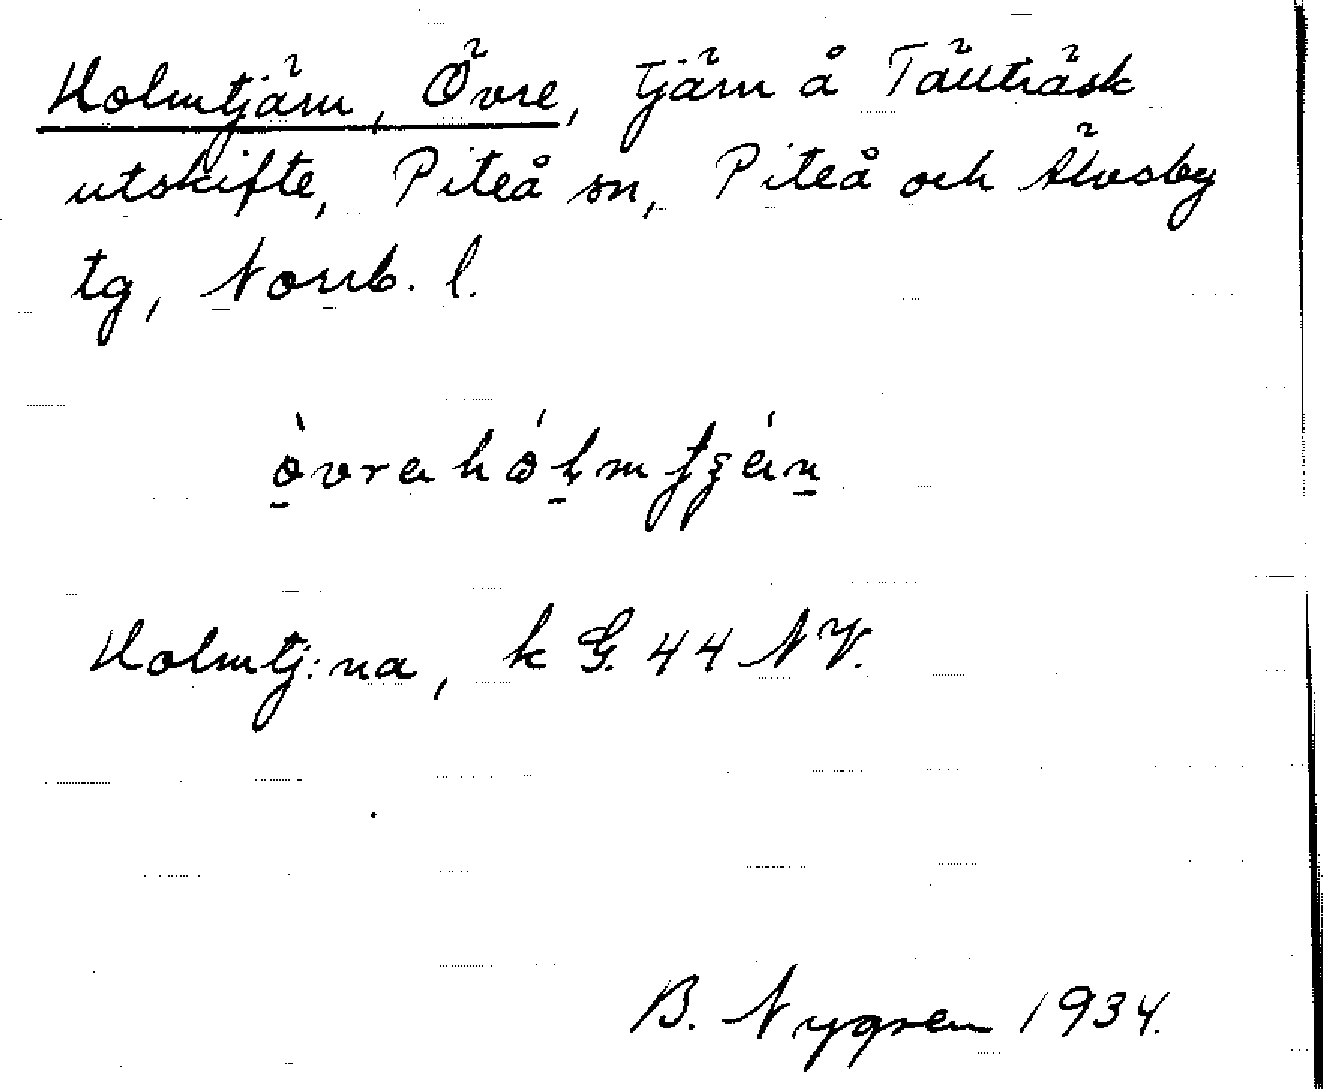 Holmtjärn, Övre, tjärn å Tällträsk
utskifte, Piteå sn, Piteå och Älvsby
tg, Norrb. l.
Holmtj:na, k G. 44 NV.
B. Nygren 1934.